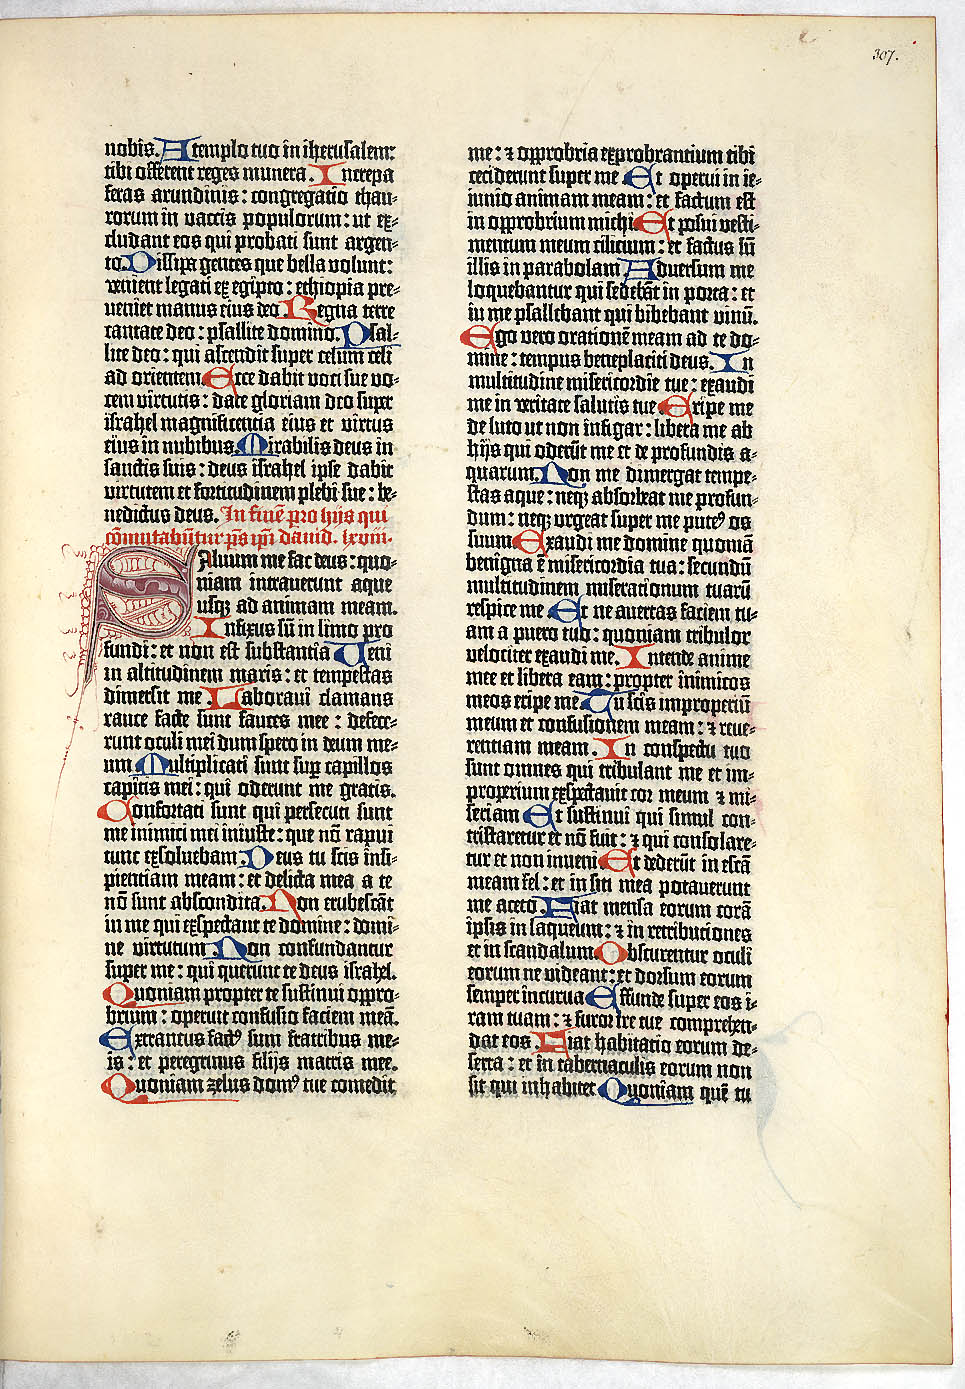 307.
nobis. A templo tuo in iherusalem:
tibi offerent reges munera. Increpa
feras arundinis: congregatio thau-
rorum in vaccis populorum: ut ex-
cludant eos qui probati sunt argen-
to. Dissipa gentes que bella volunt:
venient legati ex egipto: ethiopia pre-
veniet manus eius deo Regna terre
cantate deo: psallite domino. Psal-
lite deo: qui ascendit super celum celi
ad orientem Ecce dabit voci sue vo-
cem virtutis: date gloriam deo super
israhel magnificencia eius et virtus
eius in nubibus. Mirabilis deus in
sanctis suis: deus israhel ipse dabit
virtutem et fortitudinem plebi sue: be-
nedictus deus. In finē pro hijs qui
cōmutabūtur p̄s ip̄i dāuid. lxviii.
Saluum me fac deus: quo-
niam intraverunt aque
usqꝫ ad animam meam.
Infixus sū in limo pro
fundi: et non est substantia Veni
in altitudinem maris: et tempestas
dimersit me Laboravi clamans
rauce facte sunt fauces mee: defece-
runt oculi mei dum spero in deum me-
um Multiplicati sunt suꝑ capillos
capitis mei: qui oderunt me gratis.
Confortati sunt qui persecuti sunt
me inimici mei iniuste: que nō rapui
tunc exsoluebam. Deus tu scis insi-
pientiam meam: et delicta mea a te
nō sunt abscondita. Non erubescāt
in me qui exspectant te domine: domi-
ne virtutum Non confundantur
super me: qui querunt te deus israhel.
Quoniam propter te sustinui oppro-
brium: operuit confusio faciem meā.
Extraneus factꝰ sum fratribus me-
is: et peregrinus filijs matris mee.
Quoniam zelus domꝰ tue comedit
me: ⁊ opprobria exprobrantium tibi
ceciderunt super me Et operui in ie-
iunio animam meam: et factum est
in opprobrium michi Et posui vesti-
mentum meum cilicium: et factus sū
illis in parabolam Adversum me
loquebantur qui sedebāt in porta: et
in me psallebant qui bibebant vinū.
Ego vero orationē meam ad te do-
mine: tempus beneplaciti deus. In
multitudine misericordie tue: exaudi
me in veritate salutis tue Eripe me
de luto ut non infigar: libera me ab
hijs qui oderūt me et de profundis a-
quarum. Non me dimergat tempe-
stas aque: neqꝫ absorbeat me profun-
dum: neqꝫ urgeat super me puteꝰ os
suum Exaudi me domine quoniā
benigna ē misericordia tua: secundū
multitudinem miserationum tuarū
respice me Et ne avertas faciem tu-
am a puero tuo: quoniam tribulor
velociter exaudi me. Intende anime
mee et libera eam: propter inimicos
meos eripe me Tu scis improperiū
meum et confusionem meam: ⁊ reve-
rentiam meam. In conspectu tuo
sunt omnes qui tribulant me et im-
properium exspectavit cor meum ⁊ mi-
seriam Et sustinui qui simul con-
tristaretur et nō fuit: ⁊ qui consolare-
tur et non inveni Et dederūt in escā
meam fel: et in siti mea potaverunt
me aceto Fiat mensa eorum corā
ipsis in laqueum: ⁊ in retributiones
et in scandalum Obscurentur oculi
eorum ne videant: et dorsum eorum
semper incurva Effunde super eos i-
ram tuam: ⁊ furor ire tue comprehen-
dat eos Fiat habitatio eorum de-
serta: et in tabernaculis eorum non
sit qui inhabitet Quoniam quē tu